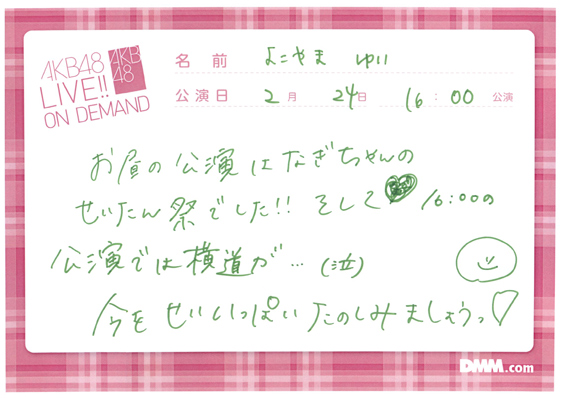 AKB48
LIVE!!
ON DEMAND
AKB
48
名前 よこやま ゆい
公演日 2月 24日 16:00 公演
お昼の公演はなぎちゃんの
せいたん祭でした!! そして♥16:00の
公演では横道が…(泣)
今をせいいっぱいたのしみましょうっ♡
DMM.com